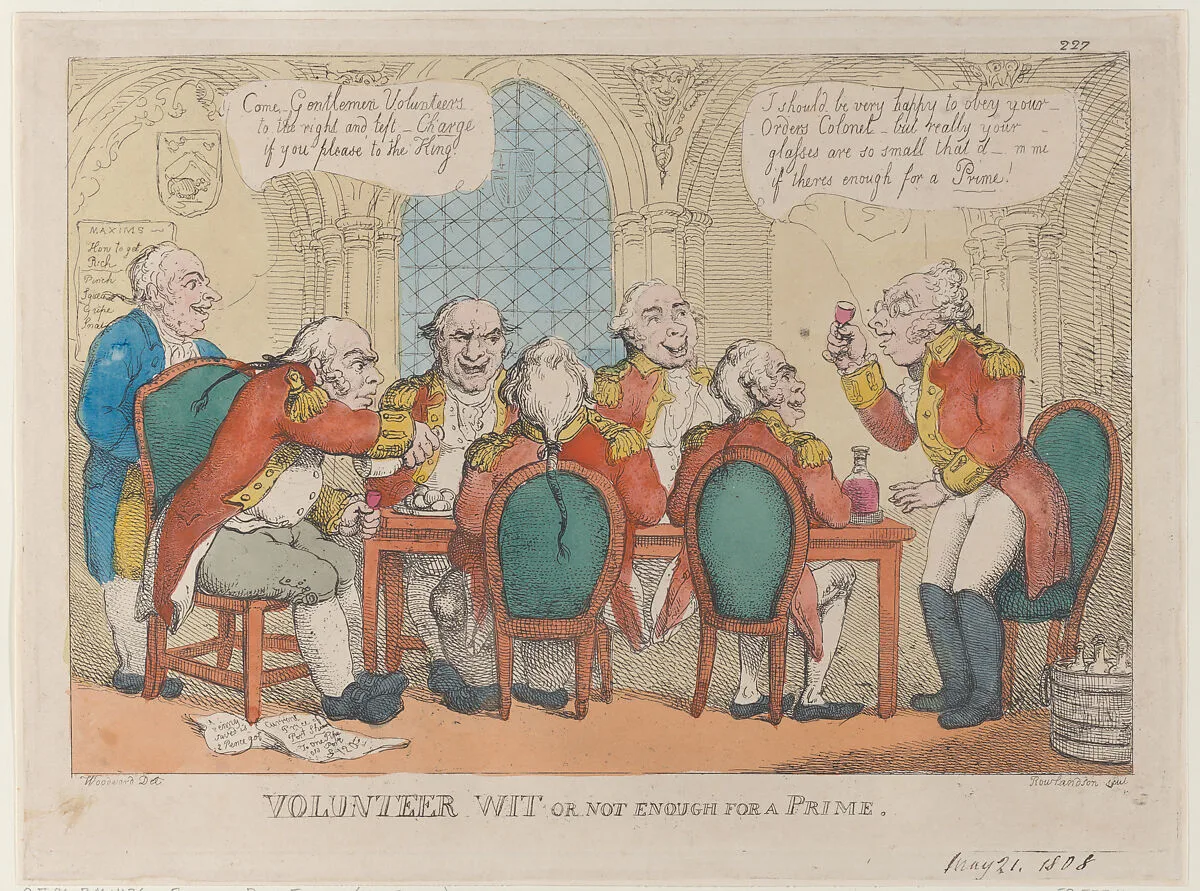 227
Come Gentlemen Volunteers
to the right and left _ Charge
if you please to the King!
I should be very happy to obey your _
Orders Colonel _ but really your _
glasses are so small that d_ m me
if theres enough for a Prime!
MAXIMS
How to get
Rich
Pinch
Squeeze
Gripe
Penny
saved is
2 Pence got
Current
Price
Port
Pipe
Woodward Del
Rowlandson scul
VOLUNTEER WIT OR NOT ENOUGH FOR A PRIME.
May 21. 1808